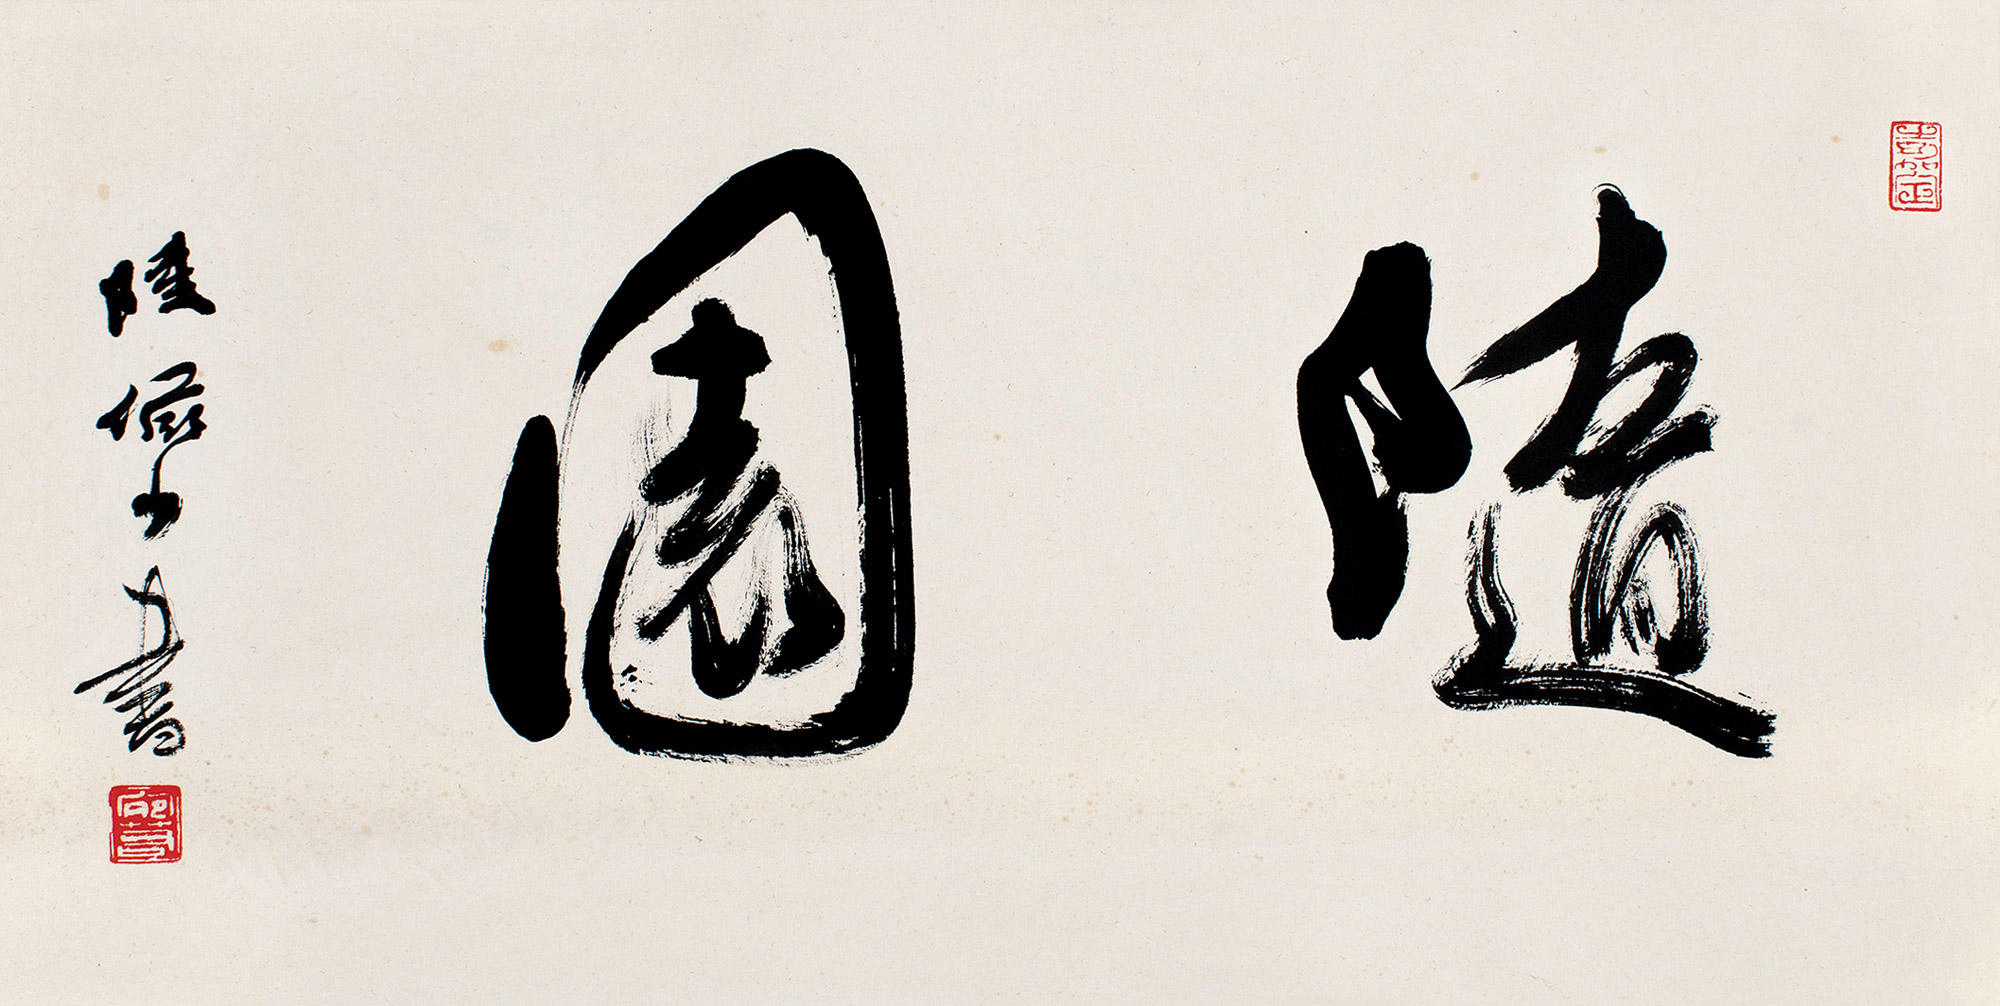 隨園
陸儼少書